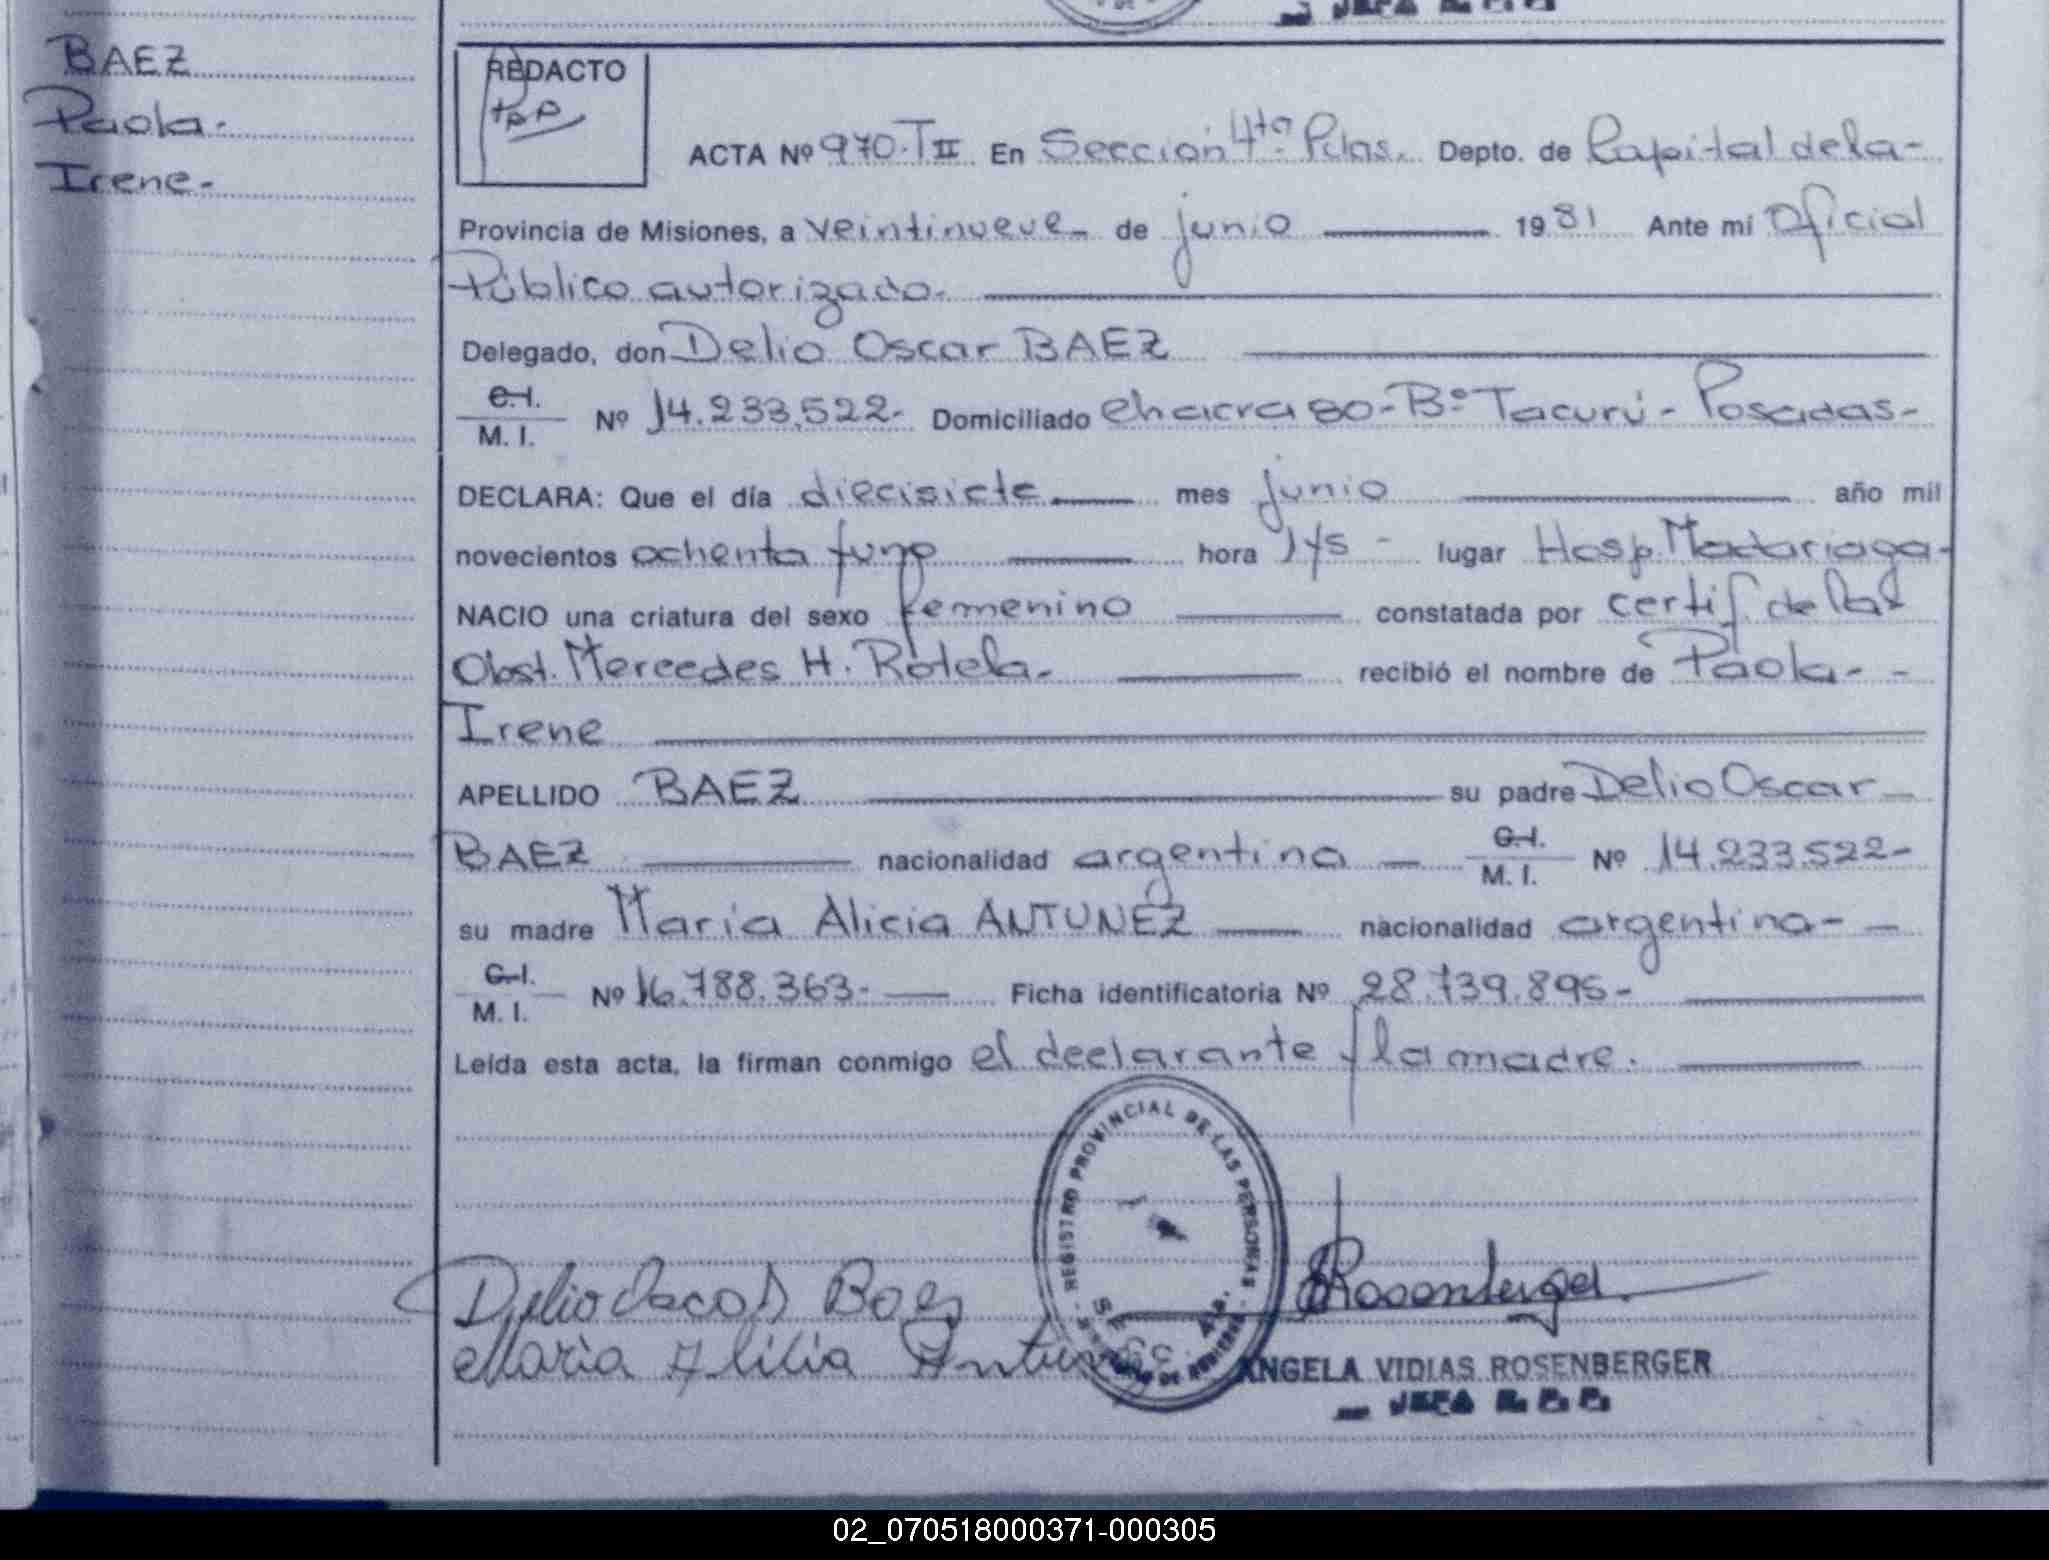 BAEZ
Paola.
Irene.
REDACTO
ACTA Nº 970. T II En Sección 4ta. Pdas. Depto. de Capital de la-
Provincia de Misiones, a veintinueve- de junio 1981 Ante mí Oficial
Público autorizado.
Delegado, don Delio Oscar BAEZ
C.I.
M. I. Nº 14.233.522- Domiciliado chacra 80-Bº Tacurú- Posadas-
DECLARA: Que el día diecisiete mes junio año mil
novecientos ochenta y uno hora 1ys- lugar Hosp. Madariaga-
NACIO una criatura del sexo femenino constatada por certif. de la
Obst. Mercedes H. Rotela. recibió el nombre de Paola- -
Irene
APELLIDO BAEZ su padre Delio Oscar
BAEZ nacionalidad argentina C.I.
M. I. Nº 14.233.522-
su madre Maria Alicia ANTUNEZ nacionalidad argentina-
C.I.
M. I. Nº 16.788.363- Ficha identificatoria Nº 28.739.895-
Leída esta acta, la firman conmigo el declarante y la madre.
REGISTRO PROVINCIAL DE LAS PERSONAS
Delio Oscar Baez
Rosenberger
Maria Alicia Antunez
ANGELA VIDIAS ROSENBERGER
JEFA
02_070518000371-000305